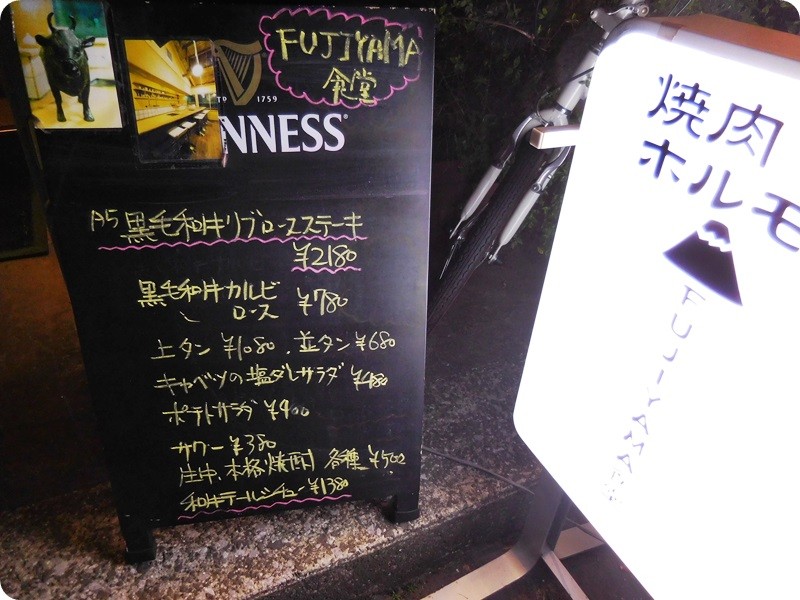 FUJIYAMA
食堂
1759
NNESS
A5黒毛和牛リブロースステーキ
¥2180
黒毛和牛カルビ
ロース ¥780
上タン ¥1080、並タン ¥680
キャベツの塩ダレサラダ ¥480
ポテトサラダ ¥400
サワー ¥380
生中、本格焼酎 各種 ¥502
和牛テールシチュー ¥1380
焼肉
ホルモ
FUJIYAMA